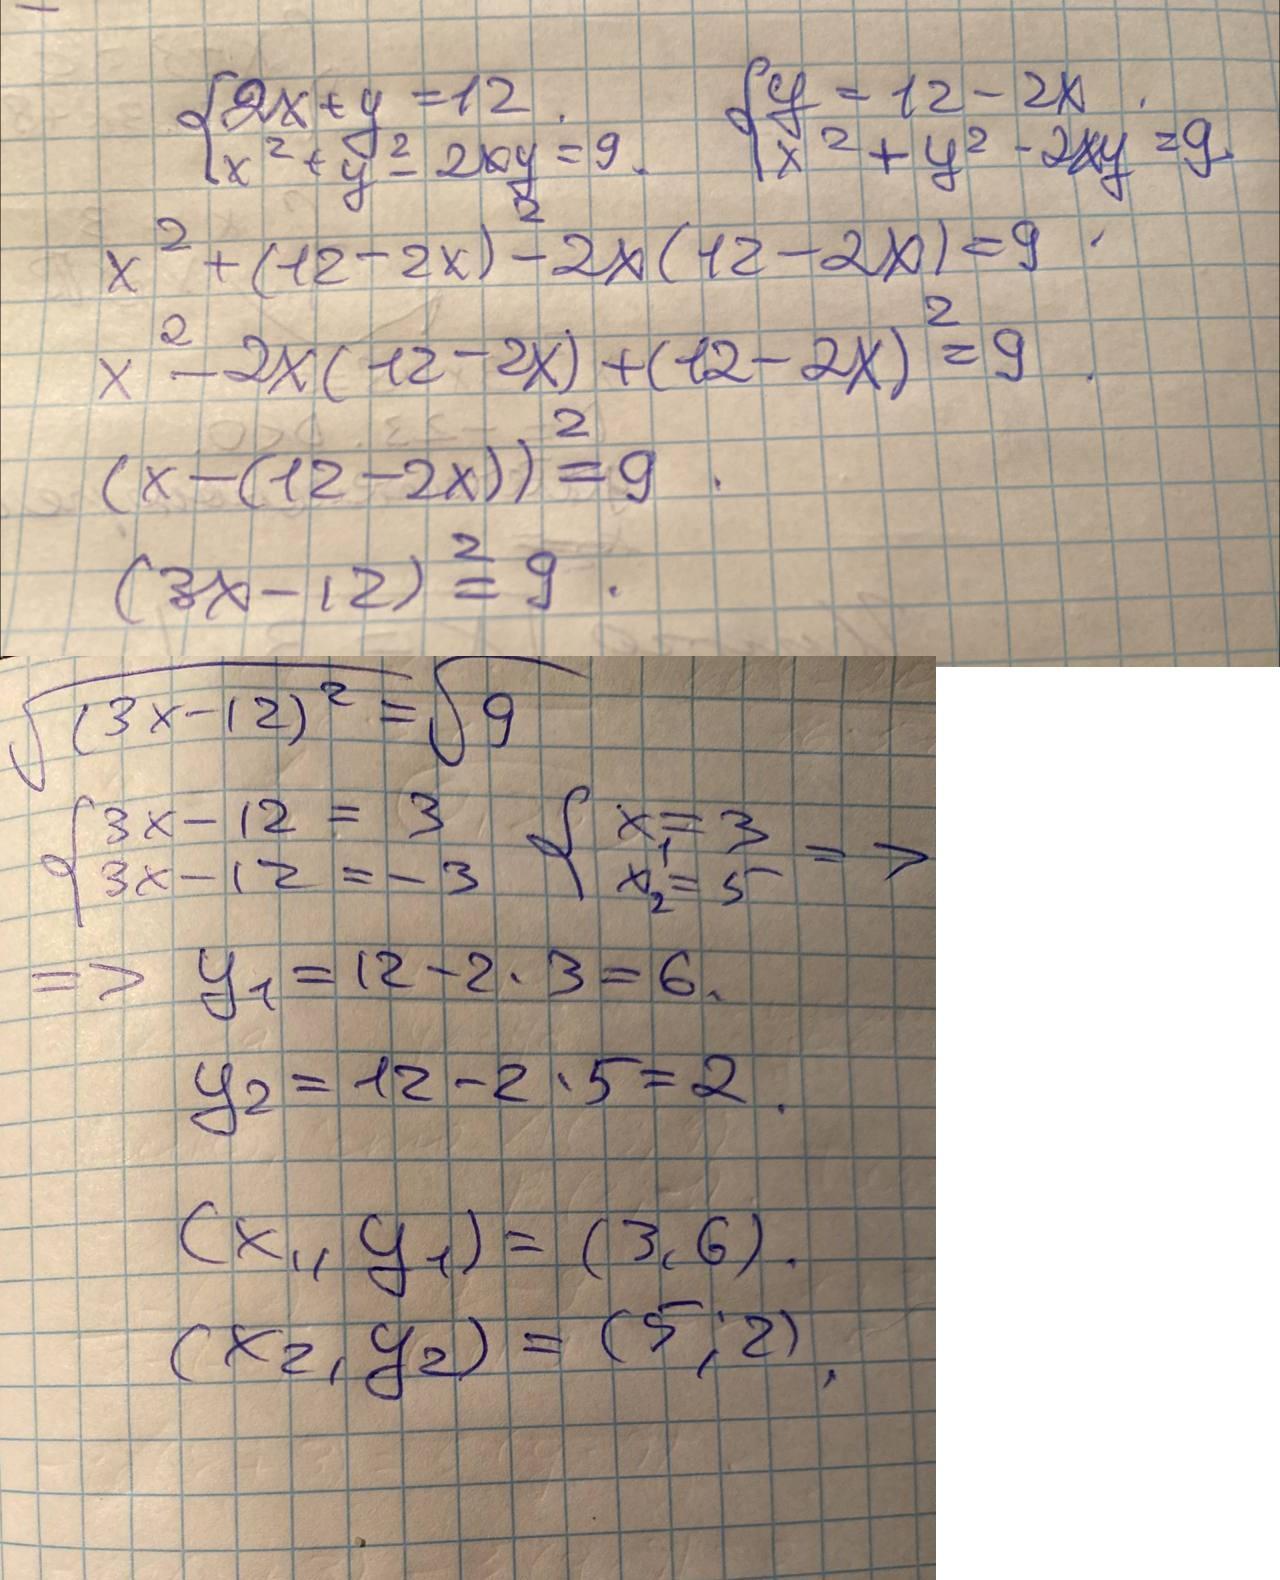 {2x+y=12. {y=12-2x.
x²+y²-2xy=9. x²+y²-2xy=9.
x²+(12-2x)²-2x(12-2x)=9.
x²-2x(12-2x)+(12-2x)²=9.
(x-(12-2x))²=9.
(3x-12)²=9.
√(3x-12)²=√9
{3x-12=3 {x₁=3
3x-12=-3 x₂=5 =>
=> y₁=12-2·3=6.
y₂=12-2·5=2.
(x₁, y₁)=(3,6).
(x₂, y₂)=(5;2).